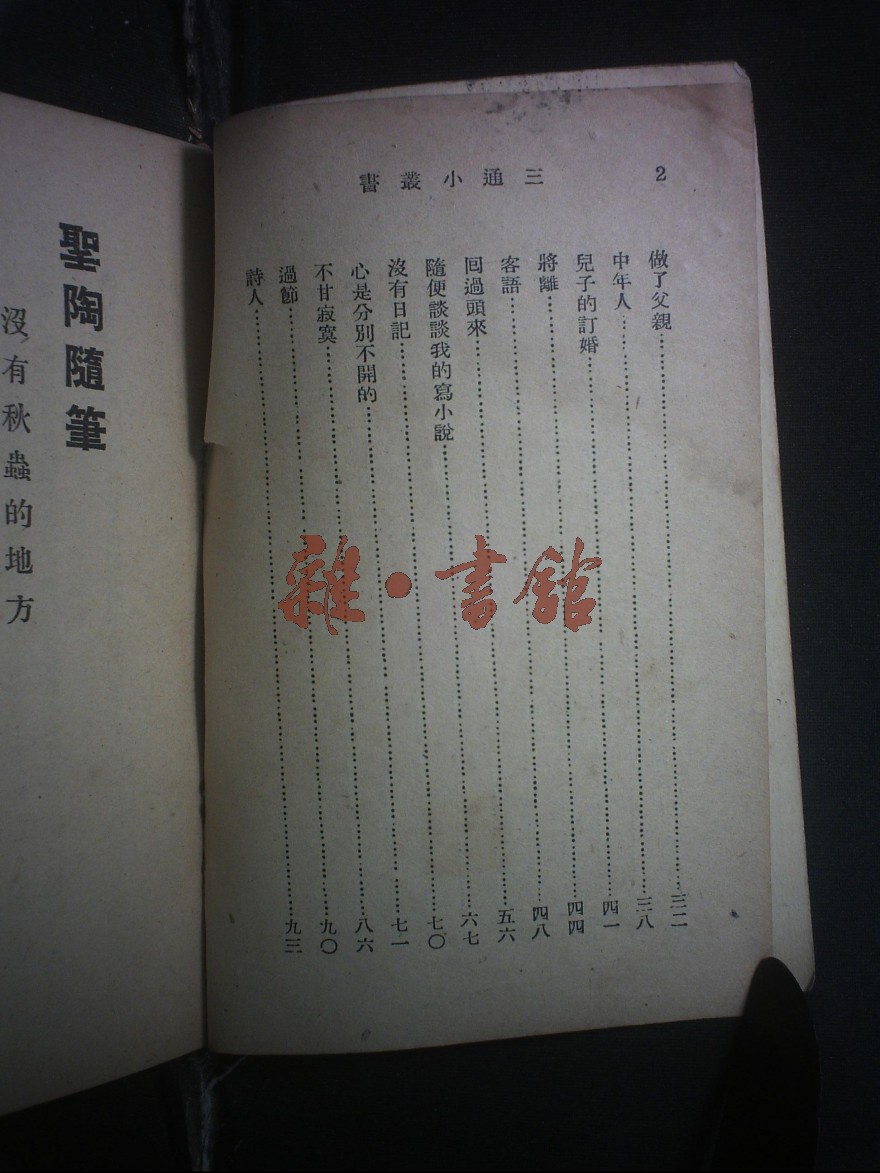 2
三通小叢書
做了父親……三二
中年人……三八
兒子的訂婚……四一
將離……四四
客語……四八
回過頭來……五六
隨便談談我的寫小說……六七
沒有日記……七〇
心是分別不開的……七一
不甘寂寞……八六
過節……九〇
詩人……九三
聖陶隨筆
沒有秋蟲的地方
雜·書館